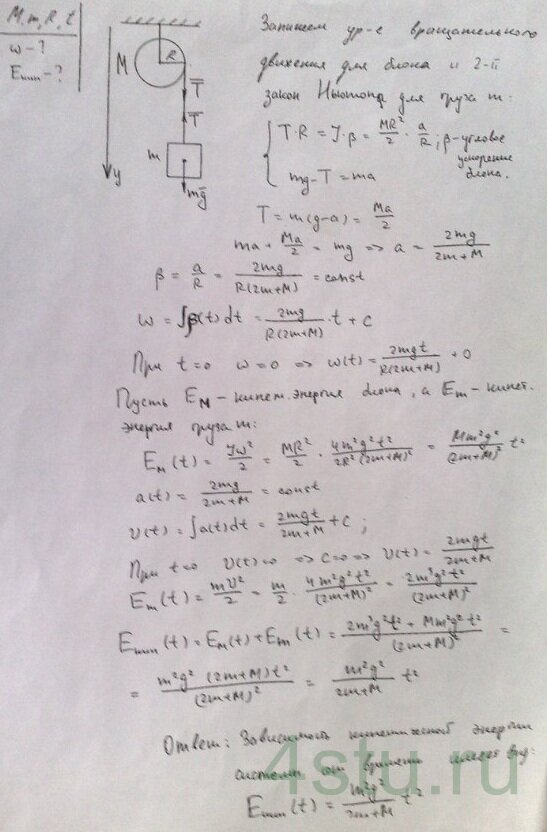 M, m, R, t
ω - ?
Eкин - ?
M
R
T̅
T̅
m
mg̅
y
Запишем ур-е вращательного
движения для блока и 2-й
закон Ньютона для груза m:
T·R = J·β = MR²/2 · a/R; β-угловое ускорение блока.
mg-T = ma
T = m(g-a) = Ma/2
ma + Ma/2 = mg => a = 2mg/(2m+M)
β = a/R = 2mg/(R(2m+M)) = const
ω = ∫β(t)dt = 2mg/(R(2m+M)) · t + C
При t=0 ω=0 => ω(t) = 2mgt/(R(2m+M)) + 0
Пусть Eм - кинет. энергия блока, а Em - кинет.
энергия груза m:
Eм(t) = Jω²/2 = MR²/2 · 4m²g²t²/(2R²(2m+M)²) = Mm²g²/(2m+M)² t²
a(t) = 2mg/(2m+M) = const
υ(t) = ∫a(t)dt = 2mgt/(2m+M) + C;
При t=0 υ(t)=0 => C=0 => υ(t) = 2mgt/(2m+M)
Em(t) = mυ²/2 = m/2 · 4m²g²t²/(2m+M)² = 2m³g²t²/(2m+M)²
Eкин(t) = Eм(t) + Em(t) = (2m³g²t² + Mm²g²t²)/(2m+M)² =
= m²g²(2m+M)t²/(2m+M)² = m²g²/(2m+M) t²
Ответ: Зависимость кинетической энергии
системы от времени имеет вид:
Eкин(t) = m²g²/(2m+M) t²
4stu.ru